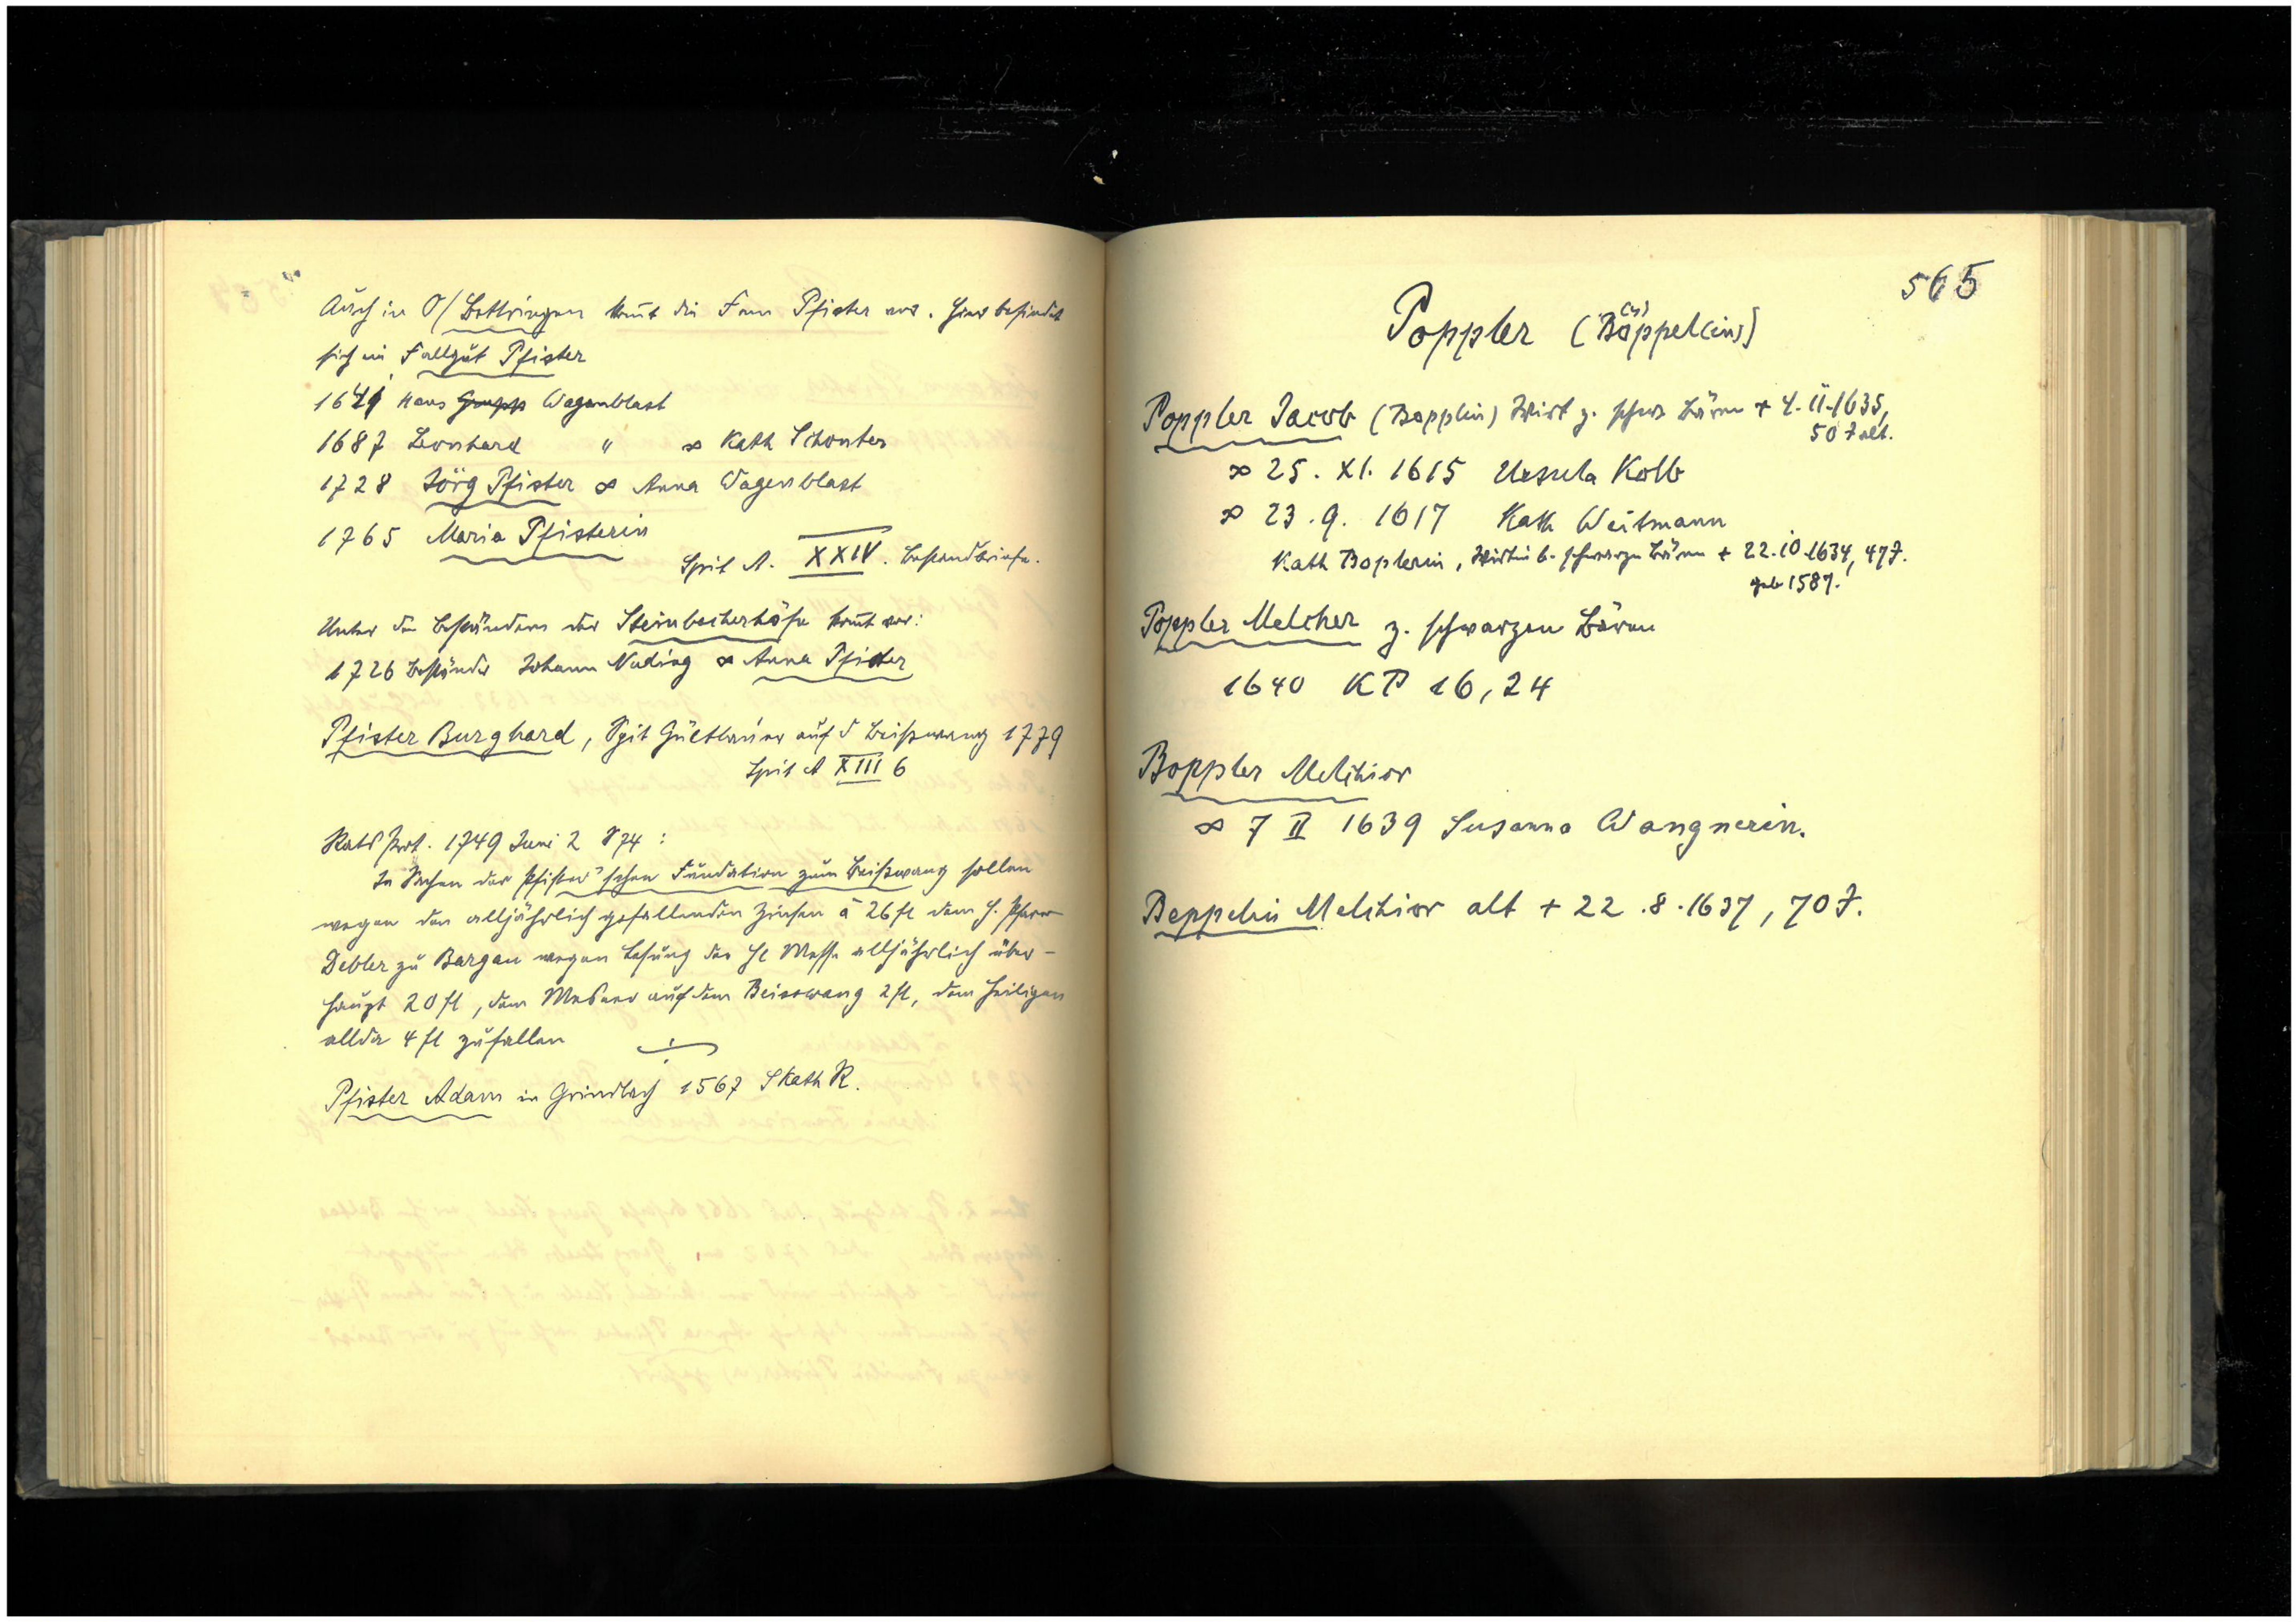 Auch in O/Bettringen komt die Fam Pfister vor. Hier befindet
sich ein Fallgut Pfister
1641 Hans Grupp Wagenblast
1687 Leonhard " ∞ Kath Schonter
1728 Jörg Pfister ∞ Anna Wagenblast
1765 Maria Pfisterin
Spit A. XXIV. Bestandbriefe.
Unter den Beständern der Steinbacherhöfe komt vor:
1726 Beständer Johann Nuding ∞ Anna Pfister
Pfister Burghard, Spit Gültbauer auf d Beißwang 1779
Spit A XIII 6
Rats Prot. 1749 Juni 2 S 74 :
In Sachen der Pfister'schen Fundation zum Beißwang sollen
wegen den alljährlich gefallenden Zinsen à 26 fl dem H. Pfarrer
Debler zu Bargau wegen Lesung der Hl Messe alljährlich über-
haupt 20 fl, dem Mesner auf dem Beisswang 2 fl, dem Heiligen
allda 4 fl zufallen
Pfister Adam in Grindlach 1567 S Kath R.
565
Poppler (Böppel(in))
Poppler Jacob (Bopplin) Wirt z. schwz Bären + 4. II. 1635,
50 J alt.
∞ 25. XI. 1615 Ursula Kolb
∞ 23. 9. 1617 Kath Weitmann
Kath Boplerin, Wirtin b. schwarzen Bären + 22. 10. 1634, 47 J.
geb 1587.
Poppler Melcher z. schwarzen Bären
1640 KP 16, 24
Boppler Melchior
∞ 7 II 1639 Susanna Wangnerin.
Beppelin Melchior alt + 22. 8. 1637, 70 J.